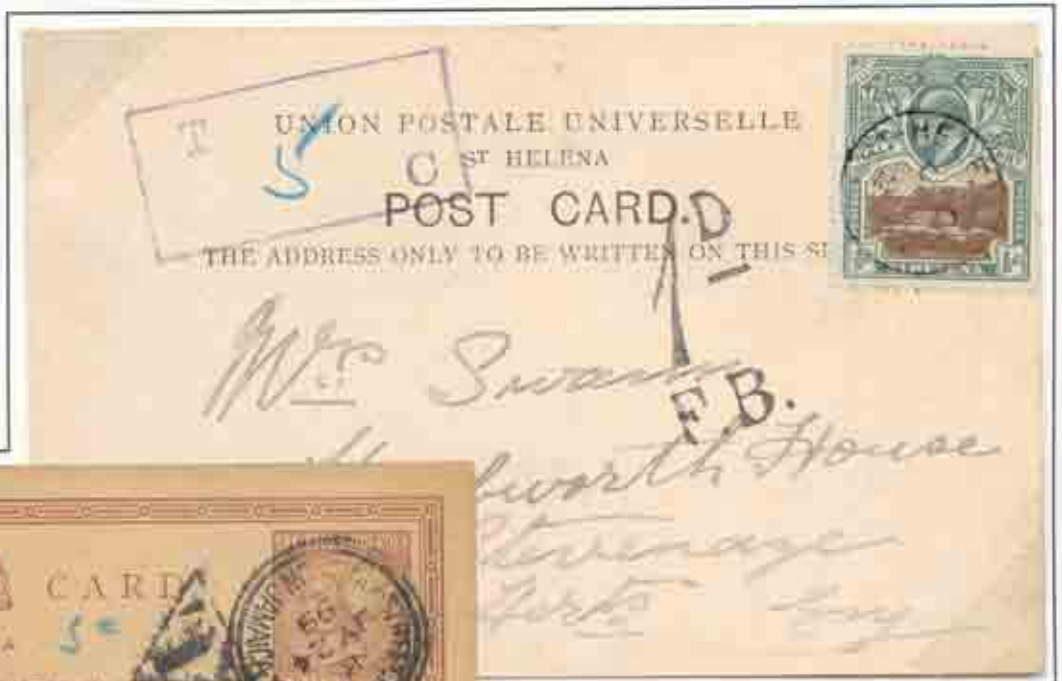 T
5
C
UNION POSTALE UNIVERSELLE
ST HELENA
POST CARD.
THE ADDRESS ONLY TO BE WRITTEN ON THIS SI
1D
F.B.
Mrs Swann
worth House
Stevenage
Herts Eng
CARD
5c